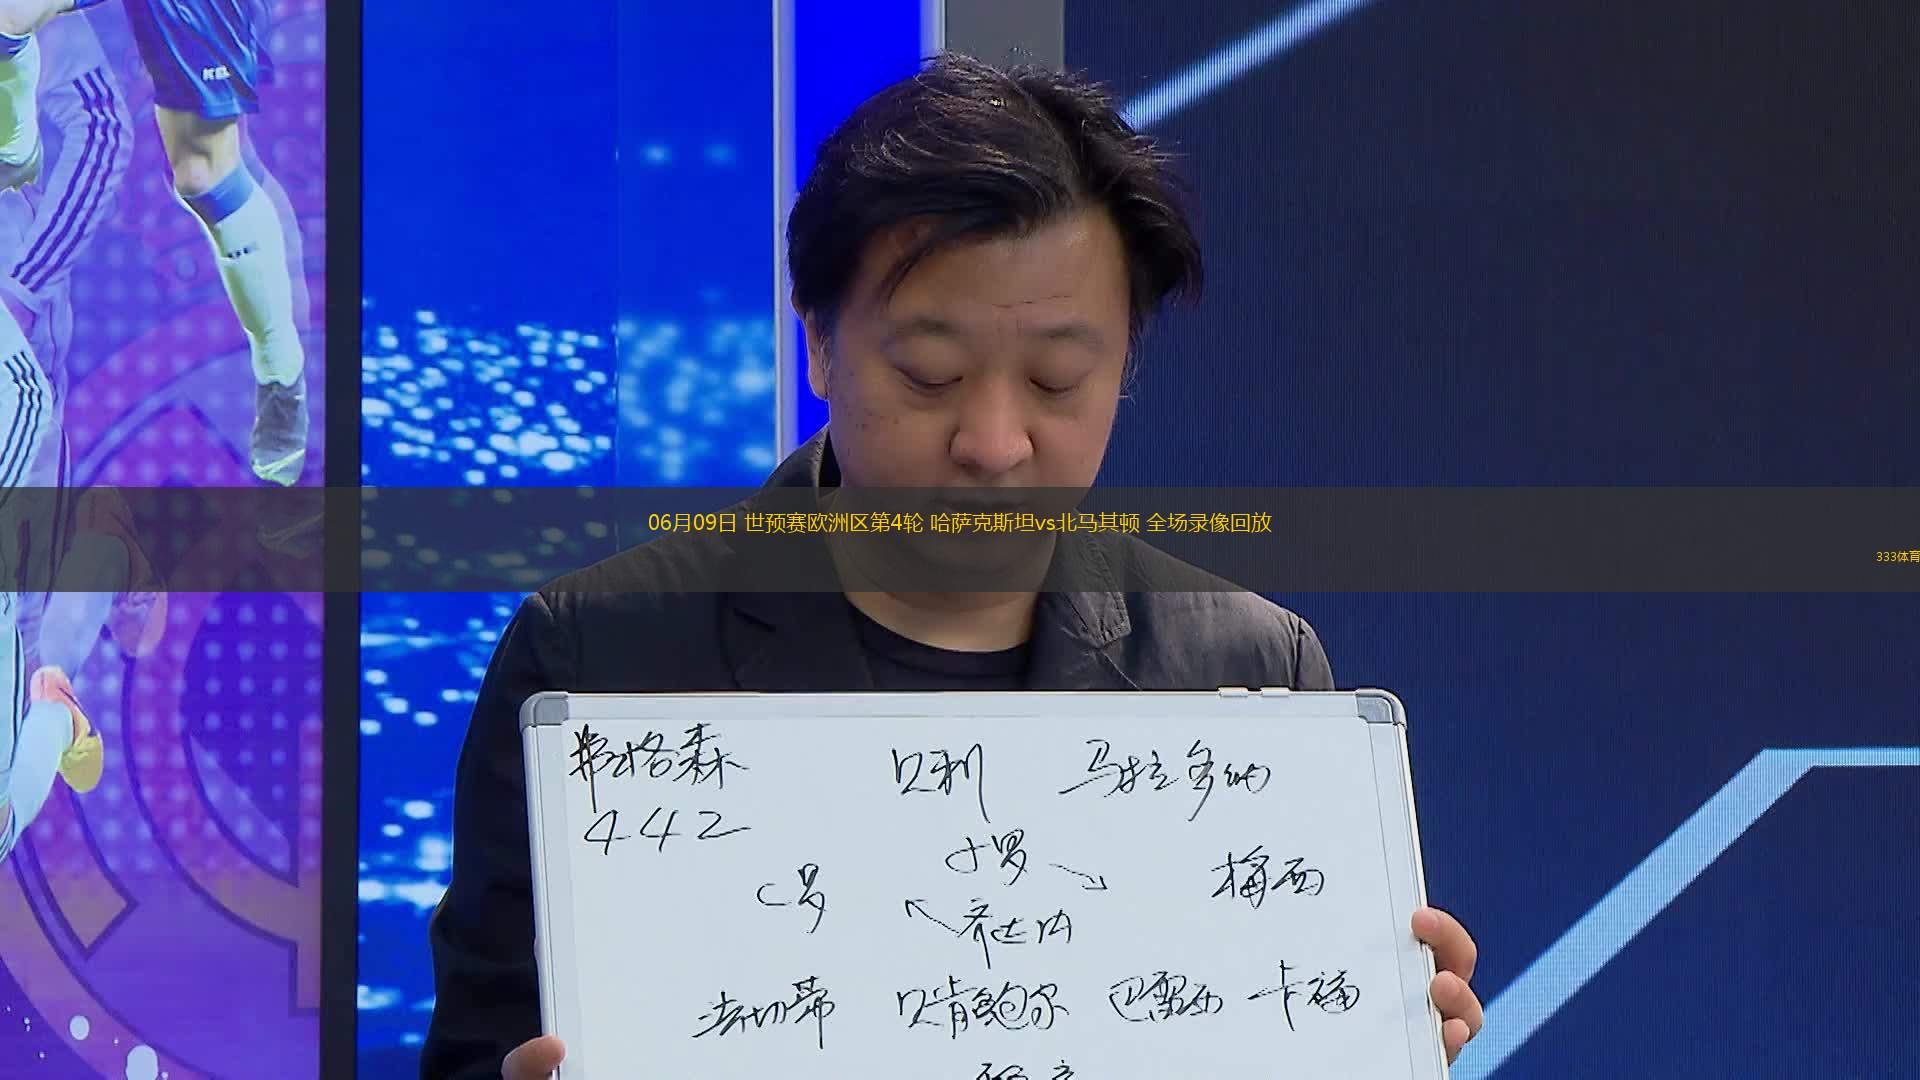 06月09日 世预赛欧洲区第4轮 哈萨克斯坦vs北马其顿 全场录像回放
333体育
弗格森 贝利 马拉多纳
442
小罗
C罗 梅西
齐达内
法切蒂 贝肯鲍尔 巴雷西 卡福